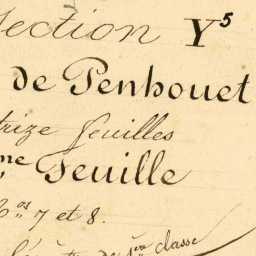 Section Y⁵
de Penhouet
trize feuilles
me Feuille
Nos 7 et 8.
de 1ère classe